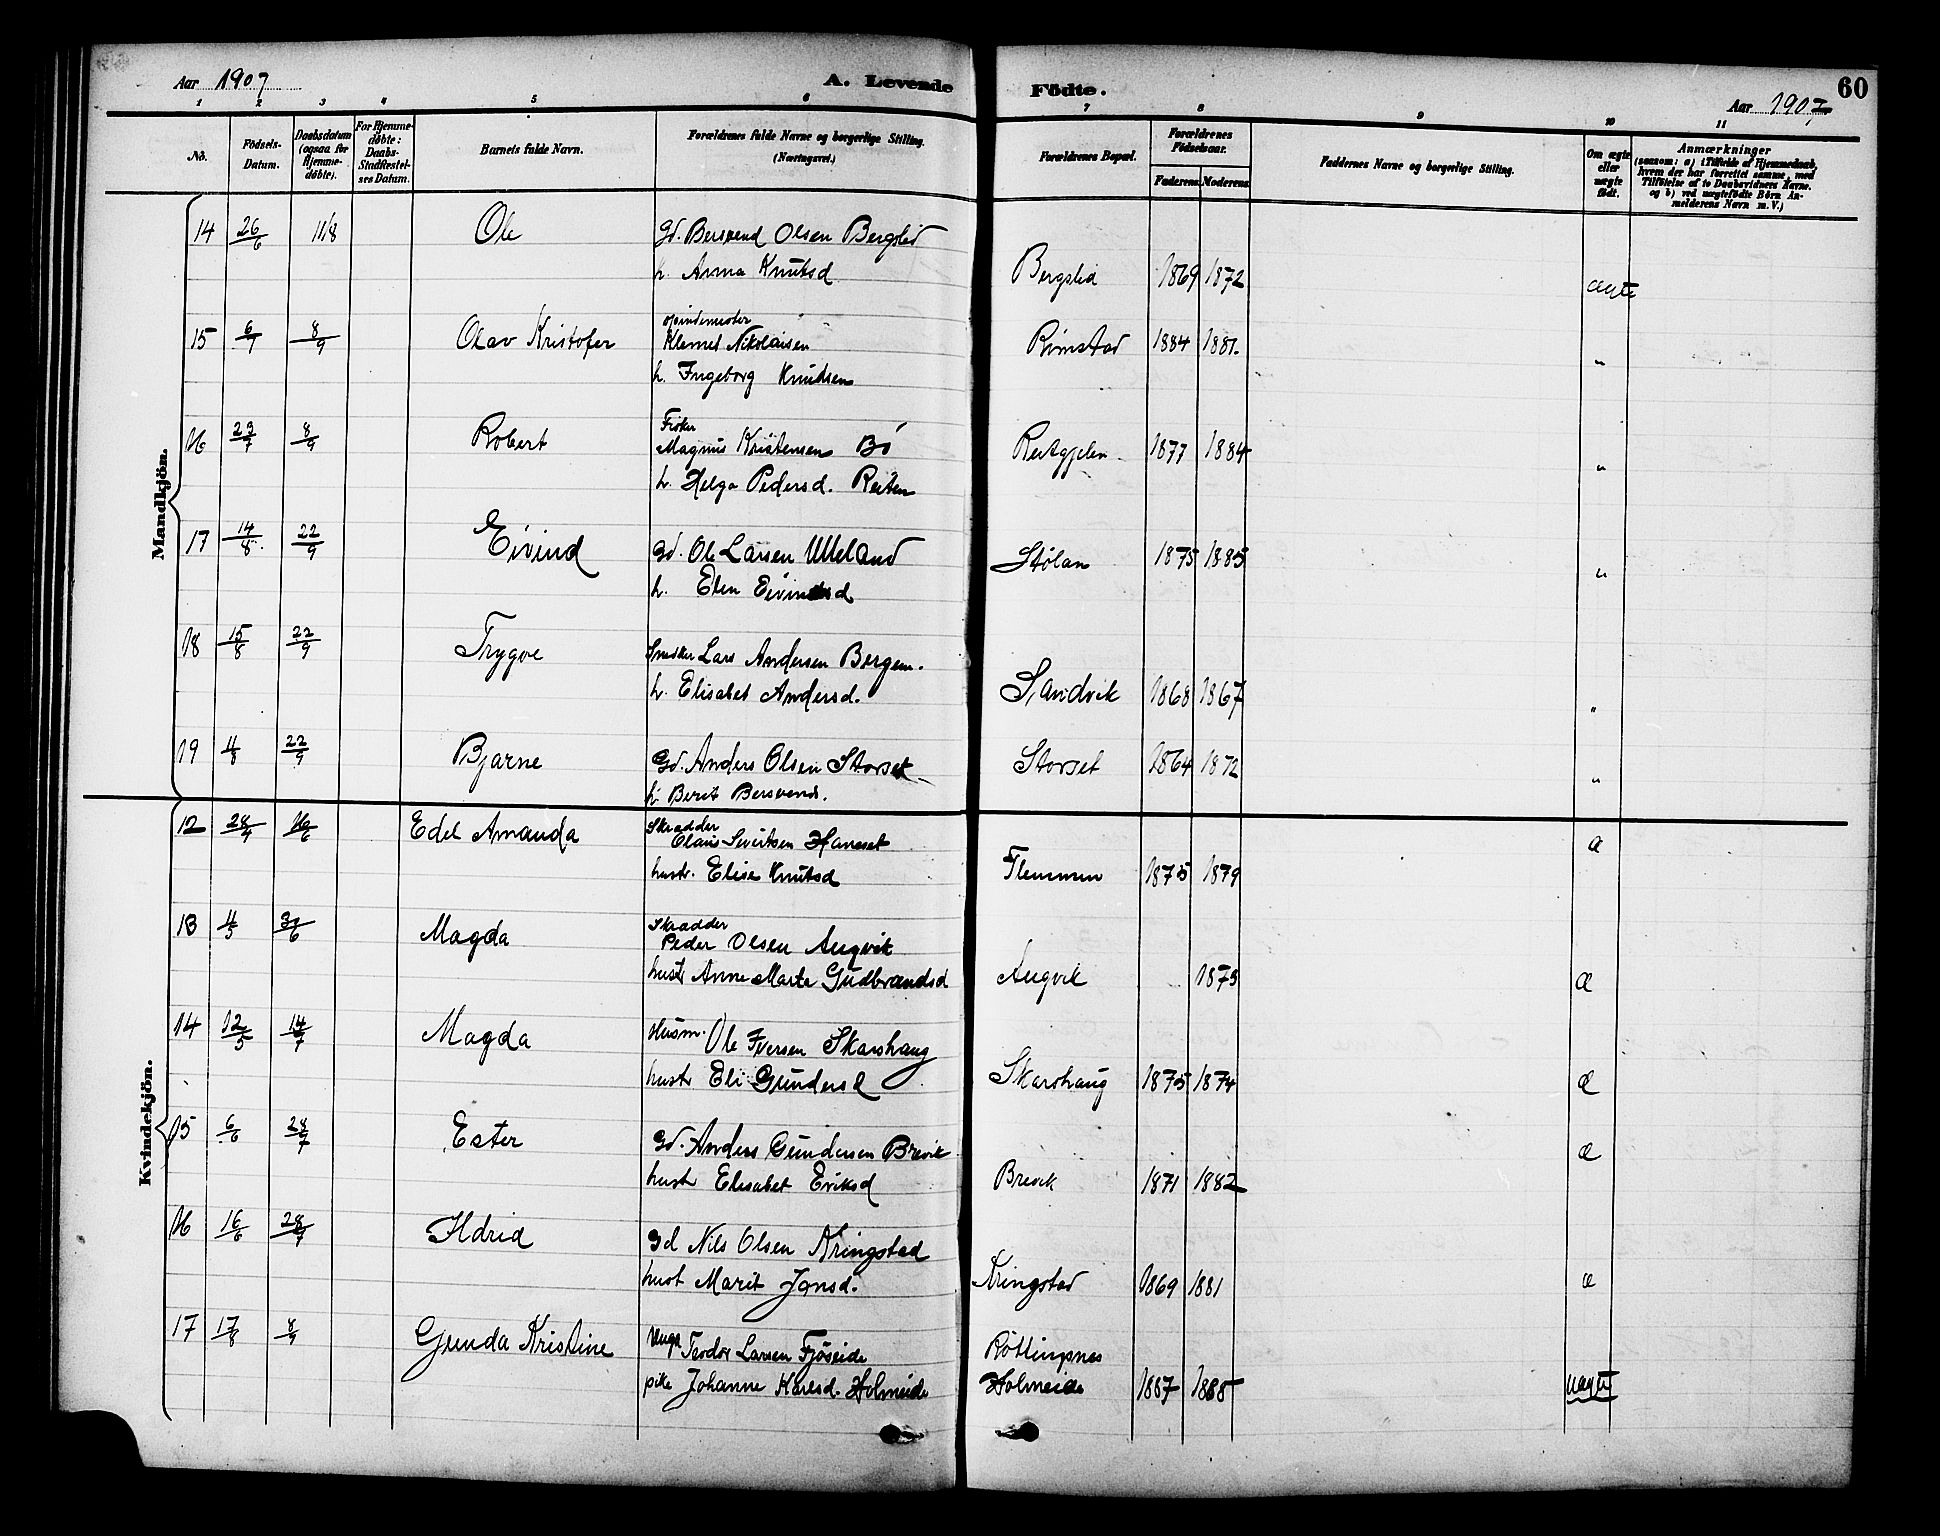 Aar 1907
A. Levende
Födte.
Aar 1907
60
1 2 3 4 5 6 7 8 9 10 11
No.
Födsels-Datum.
Daabsdatum (ogsaa for Hjemme-döbte).
For Hjemme-döbte: Daabs-Stadfæstel-ses Datum.
Barnets fulde Navn.
Forældrenes fulde Navne og borgerlige Stilling.
(Næringsvei.)
Forældrenes Bopæl.
Forældrenes Födselsaar.
Faderens. Moderens.
Faddernes Navne og borgerlige Stilling.
Om ægte eller uægte födt.
Anmærkninger
(saasom: a) i Tilfælde af Hjemmedaab, hvem der har forrettet samme, med Tilföielse af to Daabsvidners Navne, og b) ved uægtefödte Börn An-melderens Navn m. V.)
Mandkjön.
14 26/6 11/8 Ole Gd. Bersvend Olsen Bergslid
h. Anna Knutsd Bergslid 1869 1872 ægte
15 6/7 8/9 Olav Kristofer
Klemet Nikolaisen Rimstad 1884 1881. "
h. Ingeborg Knudsen
16 23/7 8/9 Robert Fisker
Magnus Kristensen Bö 1877 1884 "
h. Helga Pedersd. Reiten
17 14/8 22/9 Eivind Gd. Ole Larsen Ulleland Stølan 1875 1885 "
h. Elen Eivindsd
18 15/8 22/9 Trygve Snedker Lars Andersen Bergem.
h. Elisabet Andersd. Sandvik 1868 1867 "
19 4/8 22/9 Bjarne Gd. Anders Olsen Storset Storset 1864 1872 "
h. Berit Bersvend.
Kvindekjön.
12 28/4 16/6 Edel Amanda Skrædder
Olaus Sivertsen Haneset æ
hustr. Elise Knutsd Flemmen 1875 1879
13 4/5 Magda Skrædder
Peder Olsen Angvik
hustr Anne Marta Gudbrandsd Angvik 1873 æ
14 12/5 14/7 Magda Husm. Ole Iversen Skarshaug
hustr Eli Gundersd Skarshaug 1875 1874 æ
15 6/6 28/7 Ester Gd. Anders Gundersen Brevik æ
hustr Elisabet Eriksd Brevik 1871 1882
16 16/6 28/7 Ildrid Gd Nils Olsen Kringstad
hust Marit Jonsd. Kringstad 1869 1881 æ
17 17/8 8/9 Gunda Kristine Ungk Teodor Larsen Fjöseide Røttingsnes
pike Johanne Karlsd. Holmeide Holmeide 1887 1885 uægte